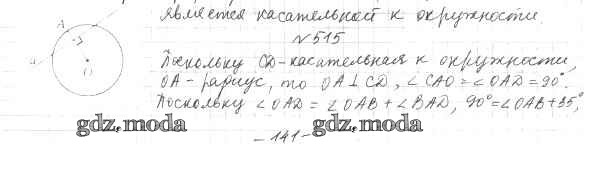 является касательной к окружности.
N 515
A
O
Поскольку CD-касательная к окружности,
OA - радиус, то OA⊥CD, ∠CAO=∠OAD=90°.
Поскольку ∠OAD = ∠OAB + ∠BAD, 90°=∠OAB+35°,
gdz.moda gdz.moda
- 141 -